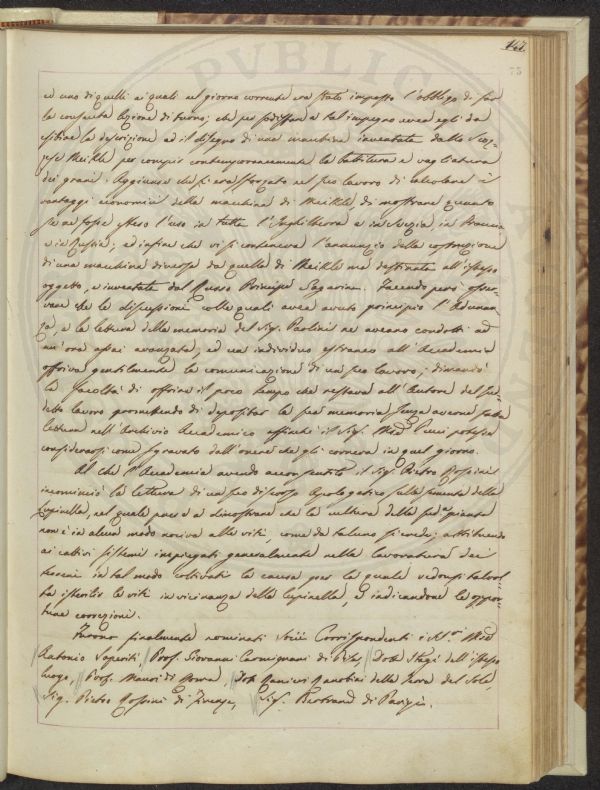 147.
75
ed uno di quelli ai quali nel giorno corrente era stato imposto l'obbligo di far
la consueta lezione di turno; che per soddisfare a tal impegno avea egli da
esibire la descrizione ed il disegno di una macchina inventata dallo Scoz-
zese Meikle per compir contemporaneamente la battitura e vagliatura
dei grani. Aggiunse che si era sforzato nel suo lavoro di calcolare i
vantaggi economici della macchina di Meikle, di mostrare quanto
se ne fosse esteso l'uso in tutta l'Inghilterra e in Svezia, in Francia
e in Russia; ed infine che vi si conteneva l'annunzio della costruzione
di una macchina diversa da quella di Meikle ma destinata all'istesso
oggetto, e inventata dal Russo Principe Gagarin. Facendo però osser-
vare che le discussioni colle quali avea avuto principio l'Adunan-
za, e la lettura della memoria del Sig. Paolini ne aveano condotti ad
un'ora assai avanzata, ed un individuo estraneo all'Accademia
offriva gentilmente la comunicazione di un suo lavoro; dimandò
la facoltà di offrire il poco tempo che restava all'Autore del sud-
detto lavoro promettendo di depositar la sua memoria senza averne fatta
lettura nell'Archivio Accademico affinchè il Sig. potesse
considerarsi come sgravato dall'onere che gli correva in quel giorno.
Al che l'Accademia avendo acconsentito il Sig. Pietro Rossini
incominciò la lettura di un suo discorso Apologetico sulla sementa della
Lupinella, nel quale prese a dimostrare che la cultura della sud.a pianta
non è in alcun modo nociva alle viti, come da taluno si crede; attribuendo
ai cattivi sistemi impiegati generalmente nella lavoratura dei
terreni in tal modo coltivati la causa per la quale vedonsi talvol-
ta isterilir le viti in vicinanza della lupinella, e indicandone le oppor-
tune correzioni.
Furono finalmente nominati Socii Corrispondenti i
Antonio Saporiti, Prof. Giovanni Carmignani di Pisa, Dott. Stagi dell'istesso
luogo, Prof. Mauri di Roma, Dott. Ranieri della Terra del Sole,
Sig. Pietro Rossini di Firenze, Sig. Bertrand di Parigi.